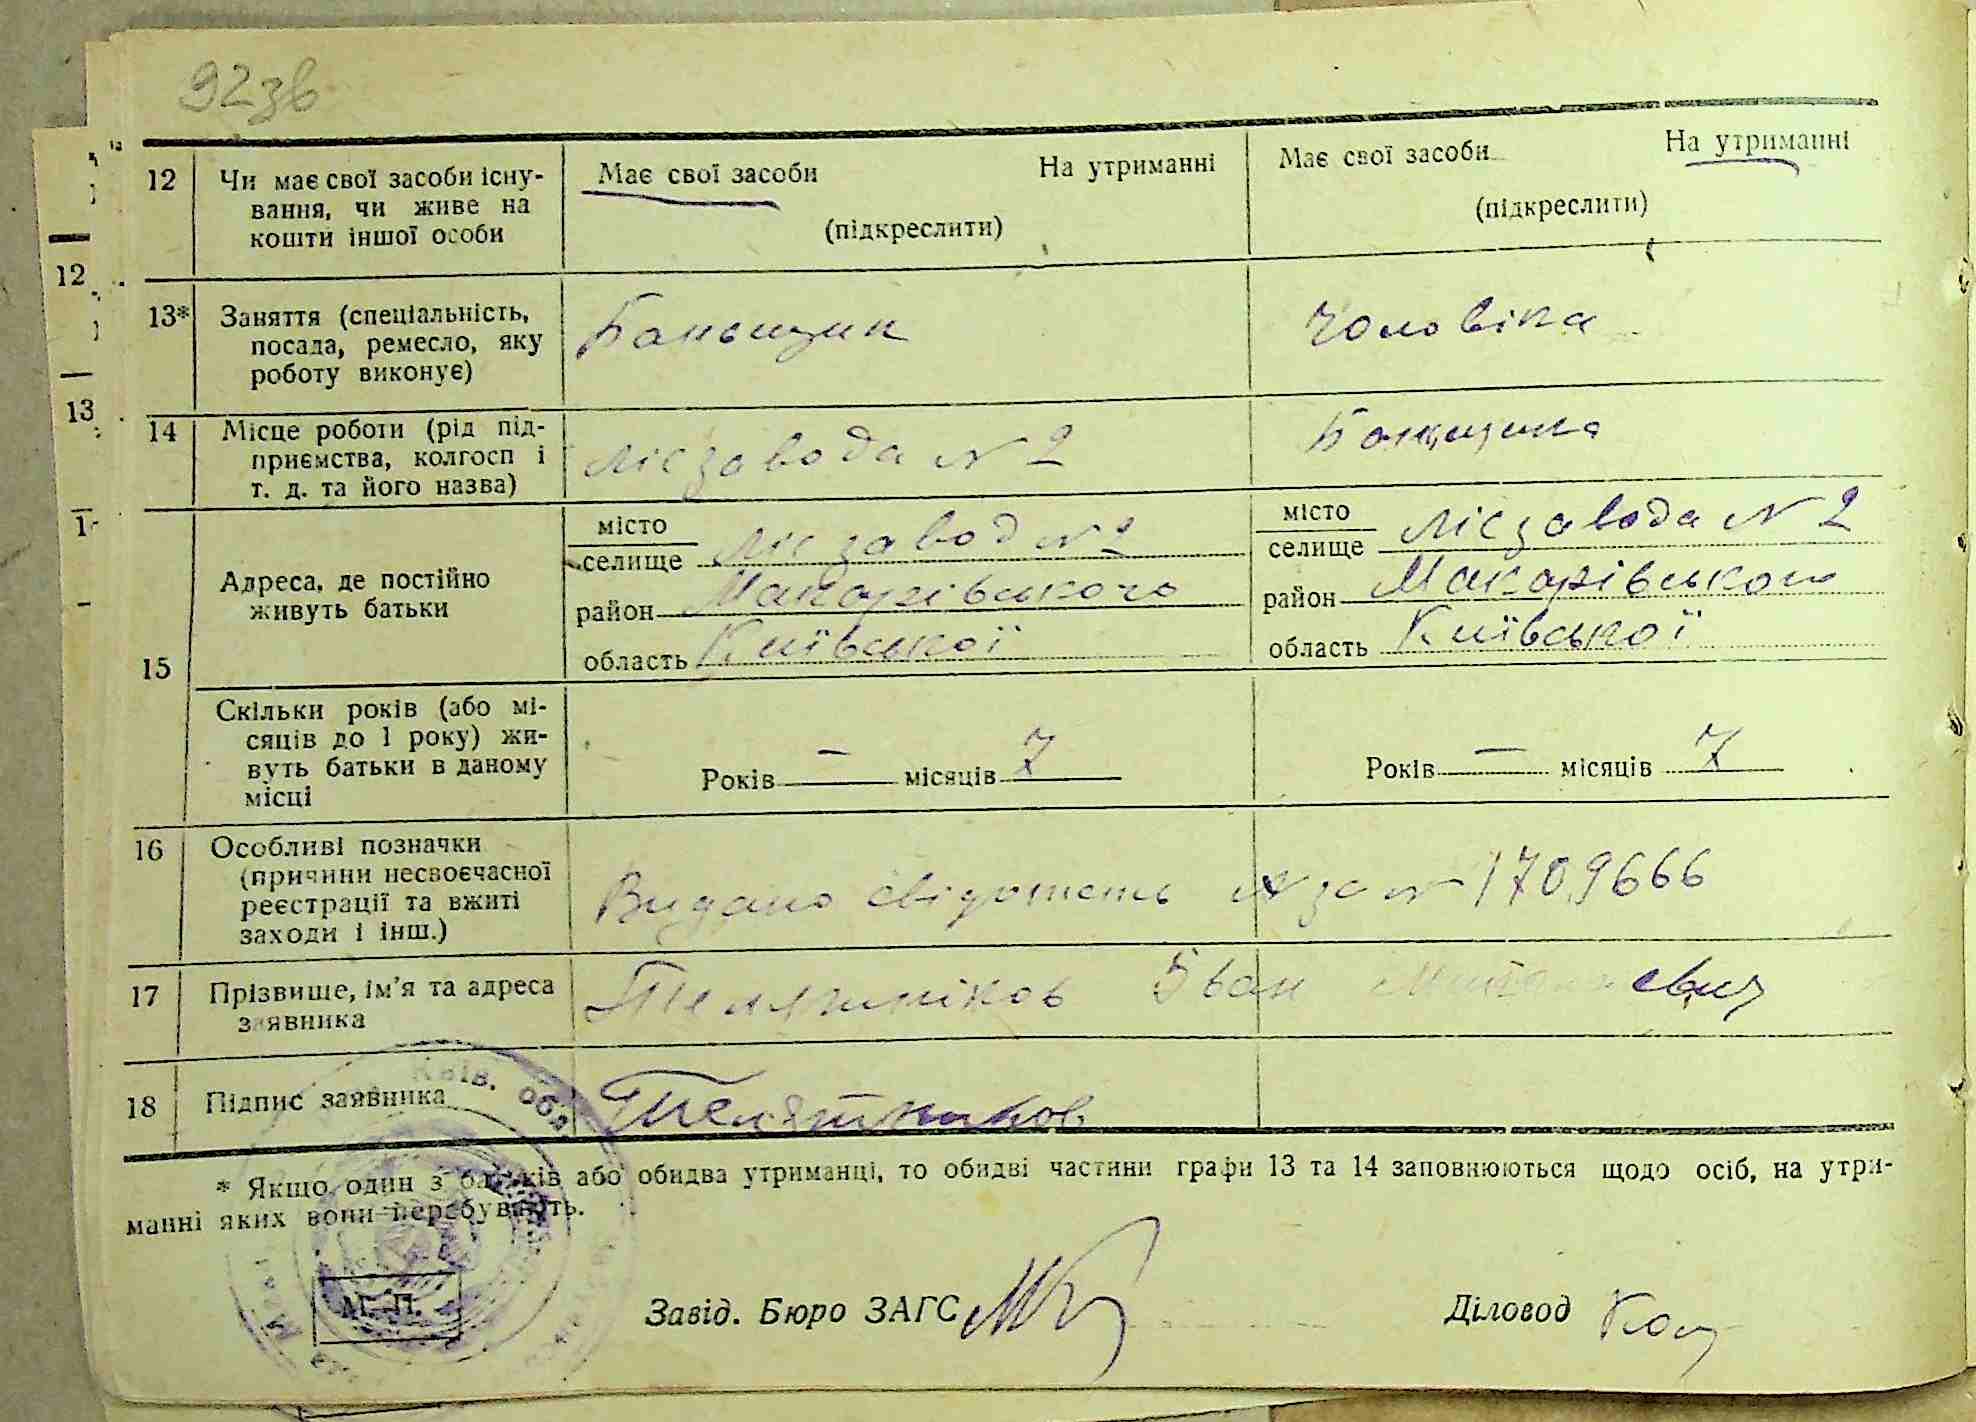 92зв
12 Чи має свої засоби існу-
вання, чи живе на
кошти іншої особи
Має свої засоби На утриманні
(підкреслити)
Має свої засоби На утриманні
(підкреслити)
13* Заняття (спеціальність,
посада, ремесло, яку
роботу виконує)
Баньщик
Чоловіка
14 Місце роботи (рід під-
приємства, колгосп і
т. д. та його назва)
Лісзавода N 2
Банщика
15 Адреса, де постійно
живуть батьки
місто
селище Лісзавод N 2
район Макарівського
область Київської
місто
селище Лісзавода N 2
район Макарівського
область Київської
Скільки років (або мі-
сяців до 1 року) жи-
вуть батьки в даному
місці
Років — місяців 7
Років — місяців 7
16 Особливі позначки
(причини несвоєчасної
реєстрації та вжиті
заходи і інш.)
Видано свідотсть за N 1709666
17 Прізвище, ім'я та адреса
заявника
Телятніков Іван
18 Підпис заявника
Телятников
* Якщо один з батьків або обидва утриманці, то обидві частини графи 13 та 14 заповнюються щодо осіб, на утри-
манні яких вони перебувають.
М. П.
Завід. Бюро ЗАГС
Діловод
12
13
1
Київ. обл